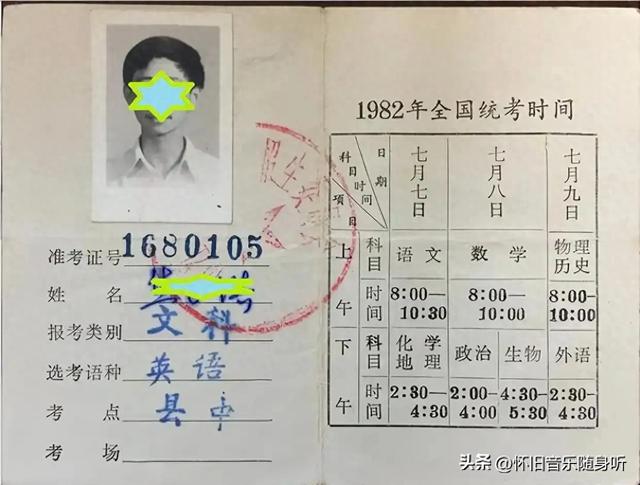 准考证号 1680105
姓 名
报考类别 文科
选考语种 英语
考 点 县中
考 场
1982年全国统考时间
日期 科目时间 項目 七月七日 七月八日 七月九日
上午 科目 语文 数学 物理 历史
时间 8:00—10:30 8:00—10:00 8:00—10:00
下午 科目 化学 地理 政治 生物 外语
时间 2:30—4:30 2:00—4:00 4:30—5:30 2:30—4:30
头条 @怀旧音乐随身听